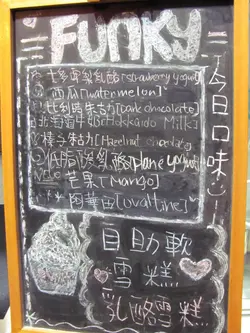 FUNKY
士多啤梨乳酪 (strawberry yogurt)
西瓜 [watermelon]
比利時朱古力 [Dark chocolate]
北海道牛奶 Hokkaido Milk
榛子朱古力 [Hazelnut chocolate]
低脂酸乳酪 [Plane yogurt]
芒果 [Mango]
阿華田 [Ovaltine]
今日口味
自助軟
雪糕
乳酪雪糕